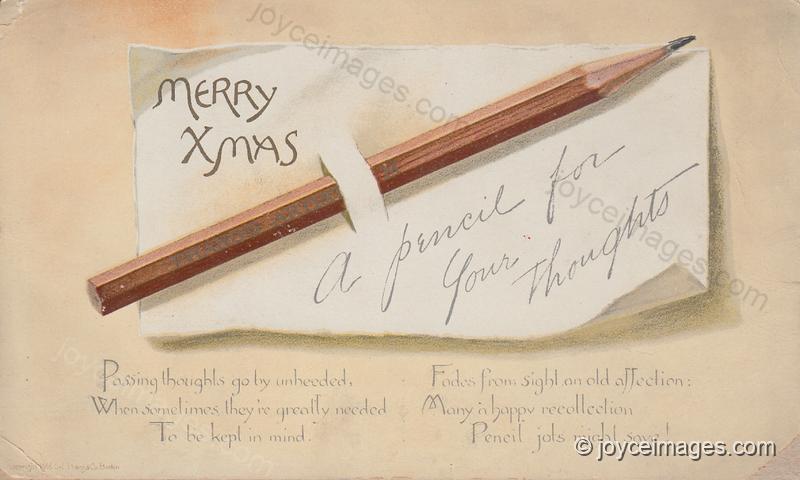 MERRY
XMAS
A pencil for
Your Thoughts
Passing thoughts go by unheeded,
When sometimes they're greatly needed
To be kept in mind.
Fades from sight an old affection:
Many a happy recollection
Pencil jots might save!
joyceimages.com
joyceimages.com
joyceimages.com
joyceimages.com
© joyceimages.com